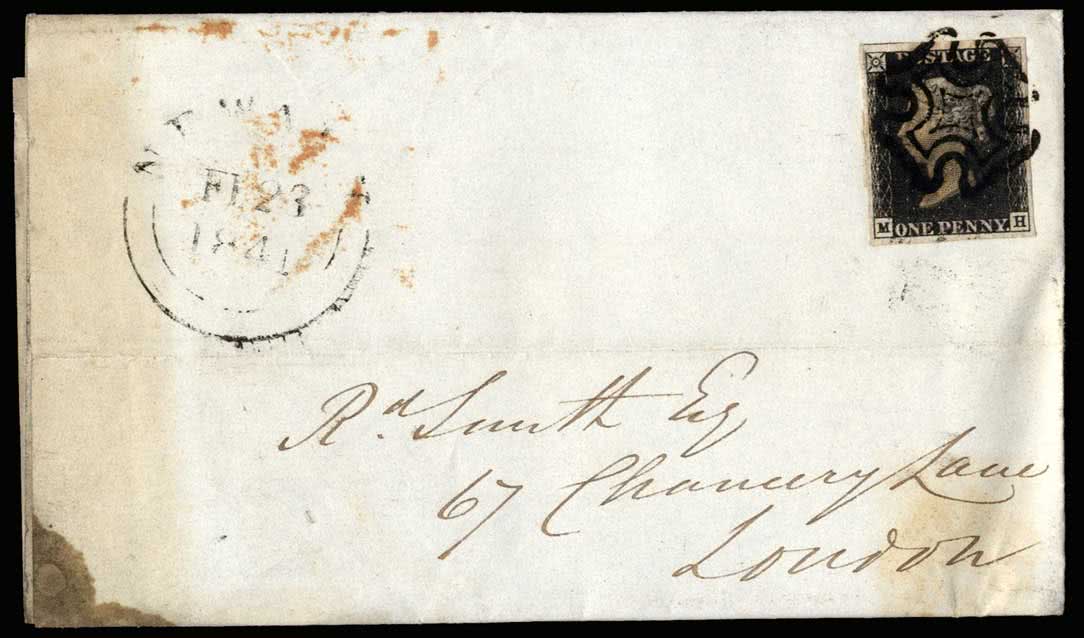 POSTAGE
M ONE PENNY H
FE 23
1841
Rd. Smith Esq
67 Chancery Lane
London